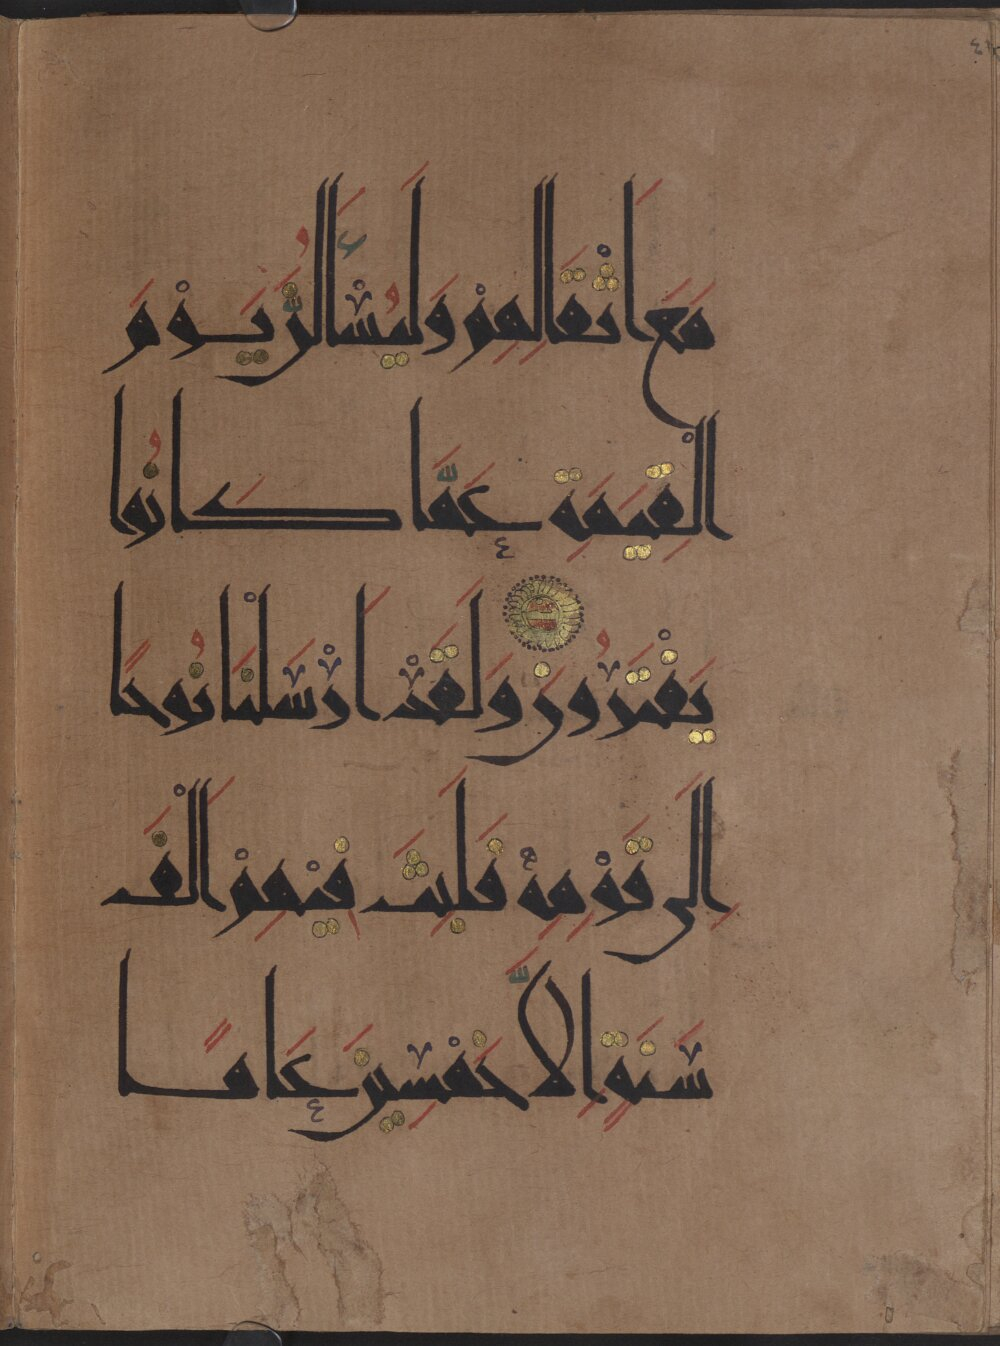 مَعَ اَثْقَالِهِمْ وَلَيُسْـَٔلُنَّ يَوْمَ
الْقِيَمَةِ عَمَّا كَانُوا
يَفْتَرُونَ وَلَقَدْ اَرْسَلْنَا نُوحًا
اِلَى قَوْمِهِ فَلَبِثَ فِيهِمْ اَلْفَ
سَنَةٍ اِلَّا خَمْسِينَ عَامًا